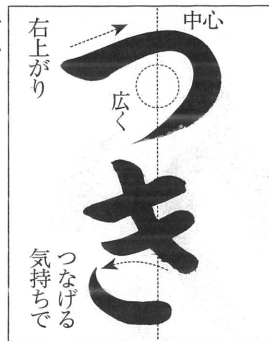 中心
右上がり
広く
つき
つなげる
気持ちで